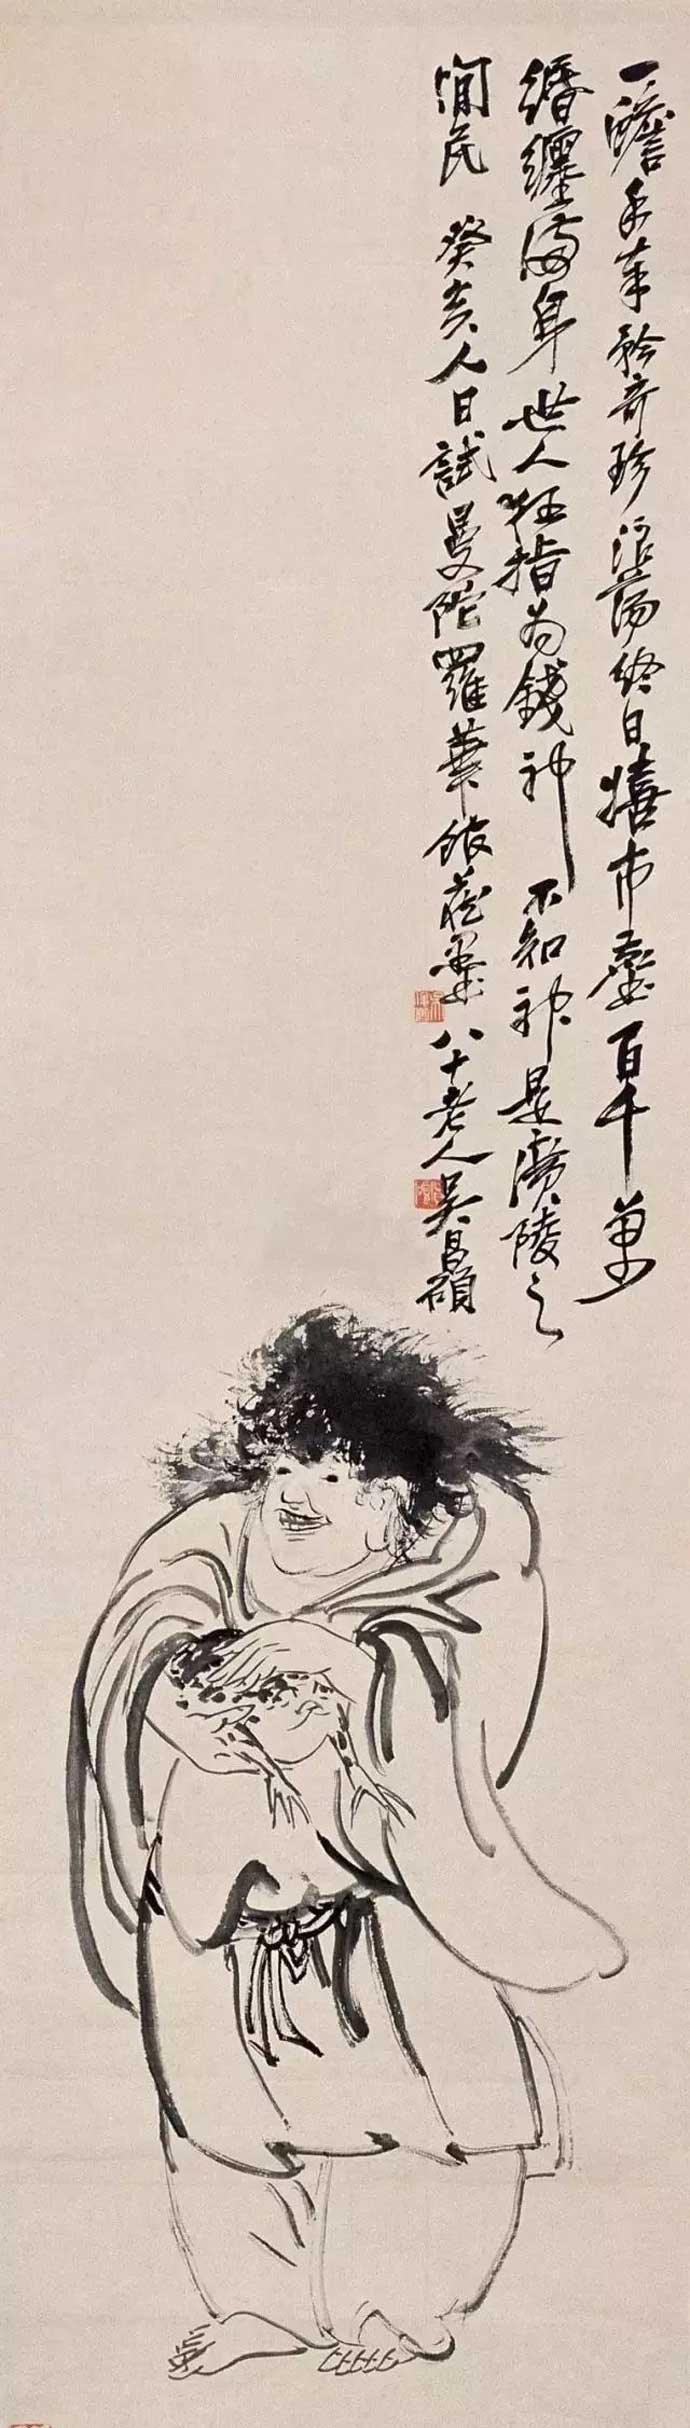 一蟾在手矜奇珍浪蕩終日嬉市塵百千萬
緡纏滿身世人狂指為錢神不知神是廣陵之
閒民 癸亥人日試曼陀羅華館藏墨
八十老人吳昌碩